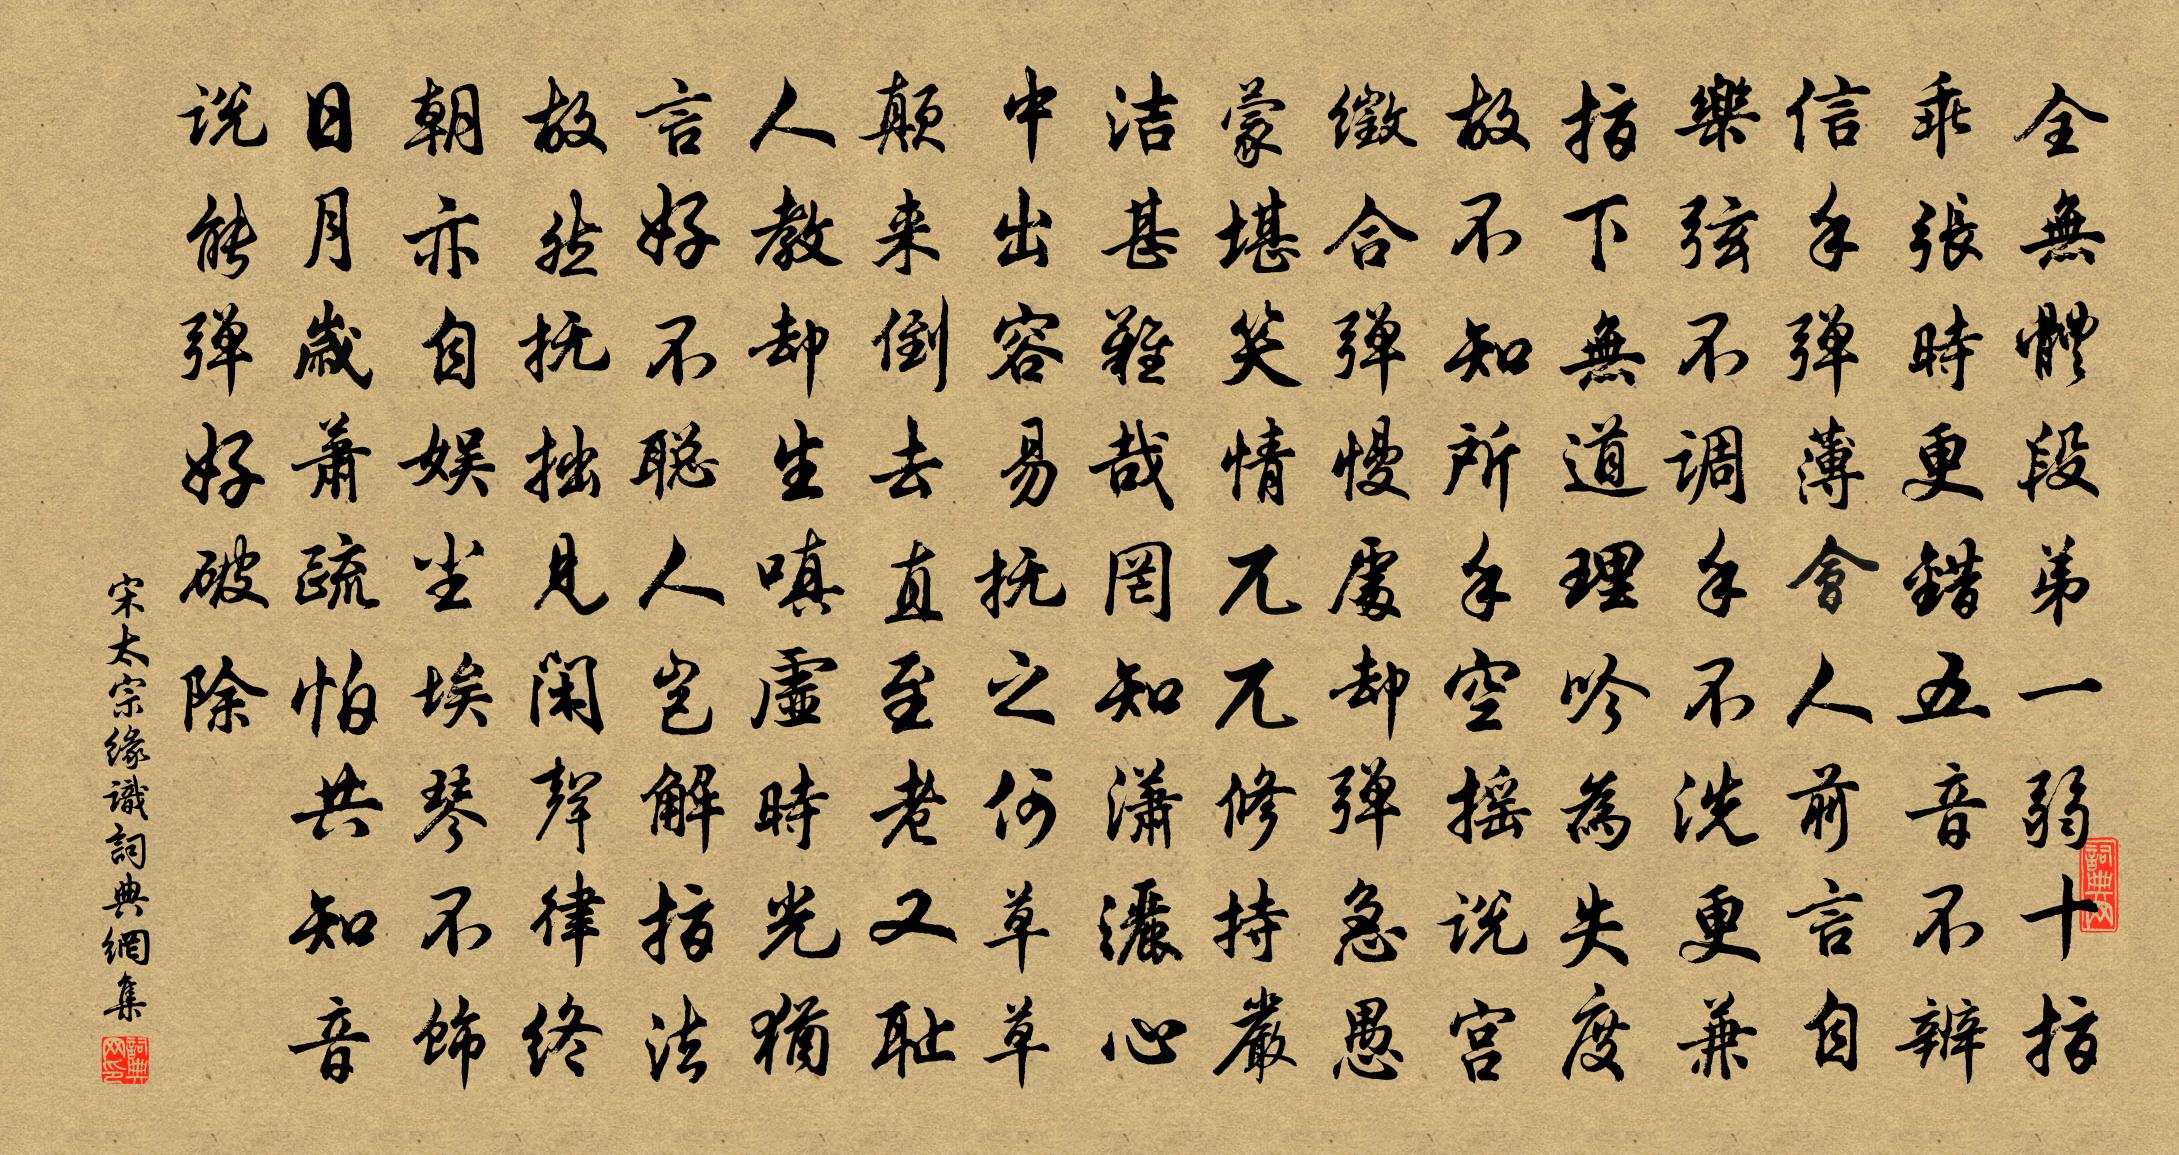 全無體段弟一弱十指
乖張時更錯五音不辨
信手彈薄會人前言自
樂弦不调手不洗更兼
指下無道理吟為失度
故不知所手空摇说宫
徵合弹慢處却弹急愚
蒙堪笑情兀兀修持嚴
洁甚難哉罔知潇灑心
中出容易抚之何草草
颠来倒去直至老又耻
人教却生嗔虚時光猶
言好不聪人岂解指法
故然抚拙見闲聲律终
朝亦自娱坐埃琴不飾
日月歲萧疏怕共知音
说能弹好破除
宋太宗緣識詞典網集
詞典网
詞典网印